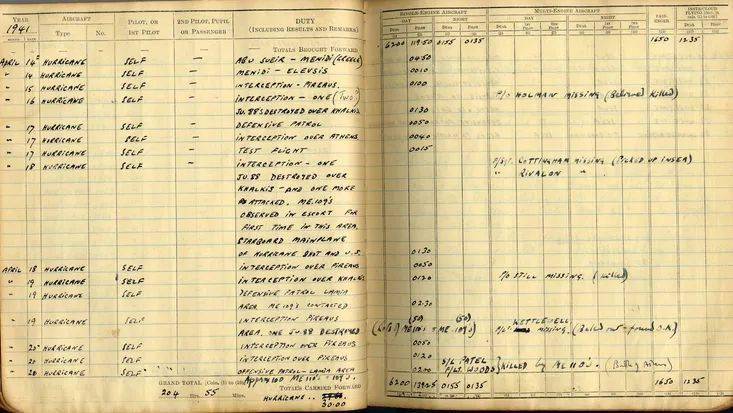 YEAR AIRCRAFT PILOT, OR 2ND PILOT, PUPIL DUTY SINGLE-ENGINE AIRCRAFT MULTI-ENGINE AIRCRAFT PASSENGER
1941 Type No. 1ST PILOT OR PASSENGER (INCLUDING RESULTS AND REMARKS) DAY NIGHT DAY NIGHT
MONTH DATE DUAL PILOT DUAL PILOT
— — — — — — TOTALS BROUGHT FORWARD 6200 119.50 0155 0135 1650 1235
APRIL 14 HURRICANE SELF — ABU SUEIR – MENIDI (GREECE) 0450
" 14 HURRICANE SELF — MENIDI – ELEUSIS 0010
" 15 HURRICANE SELF — INTERCEPTION – PIREAUS. 0100
" 16 HURRICANE SELF — INTERCEPTION – ONE (TWO?) P/O HOLMAN MISSING (Believed killed)
JU.88's DESTROYED OVER KHALKIS 0130
" 17 HURRICANE SELF — DEFENSIVE PATROL 0050
" 17 HURRICANE SELF — INTERCEPTION OVER ATHENS 0040
" 17 HURRICANE SELF — TEST FLIGHT 0015
" 18 HURRICANE SELF — INTERCEPTION – ONE F/Sgt. COTTINGHAM MISSING (PICKED UP IN SEA)
JU.88 DESTROYED OVER " RIVALON "
KHALKIS – AND ONE MORE
ATTACKED. ME.109's
OBSERVED IN ESCORT FOR
FIRST TIME IN THIS AREA.
STARBOARD MAINPLANE
OF HURRICANE BENT AND U.S. 0130
APRIL 18 HURRICANE SELF INTERCEPTION OVER PIREAUS 0050
" 19 HURRICANE SELF INTERCEPTION OVER KHALKIS 0120 P/O STILL MISSING. (killed)
" 19 HURRICANE SELF DEFENSIVE PATROL LAMIA
AREA ME 109's CONTACTED 0230
" 19 HURRICANE SELF INTERCEPTION PIREAUS (50) (50) KETTLEWELL
AREA. ONE JU.88 DESTROYED ME 110's + ME 109's P/O MISSING. (Bailed out – found O.K.)
" 20 HURRICANE SELF INTERCEPTION OVER PIREAUS 0050
" 20 HURRICANE SELF INTERCEPTION OVER PIREAUS 0120 S/L PATEL
" 20 HURRICANE SELF OFFENSIVE PATROL – LAMIA AREA 0200 F/Lt. WOODS } KILLED by ME 110's. (Battle of Athens)
Approx 100 ME 110's – 109's.
GRAND TOTAL
204 Hrs. 55 Mins.
TOTALS CARRIED FORWARD 6200 0155 0135 1650 1235
HURRICANE . .
30.00